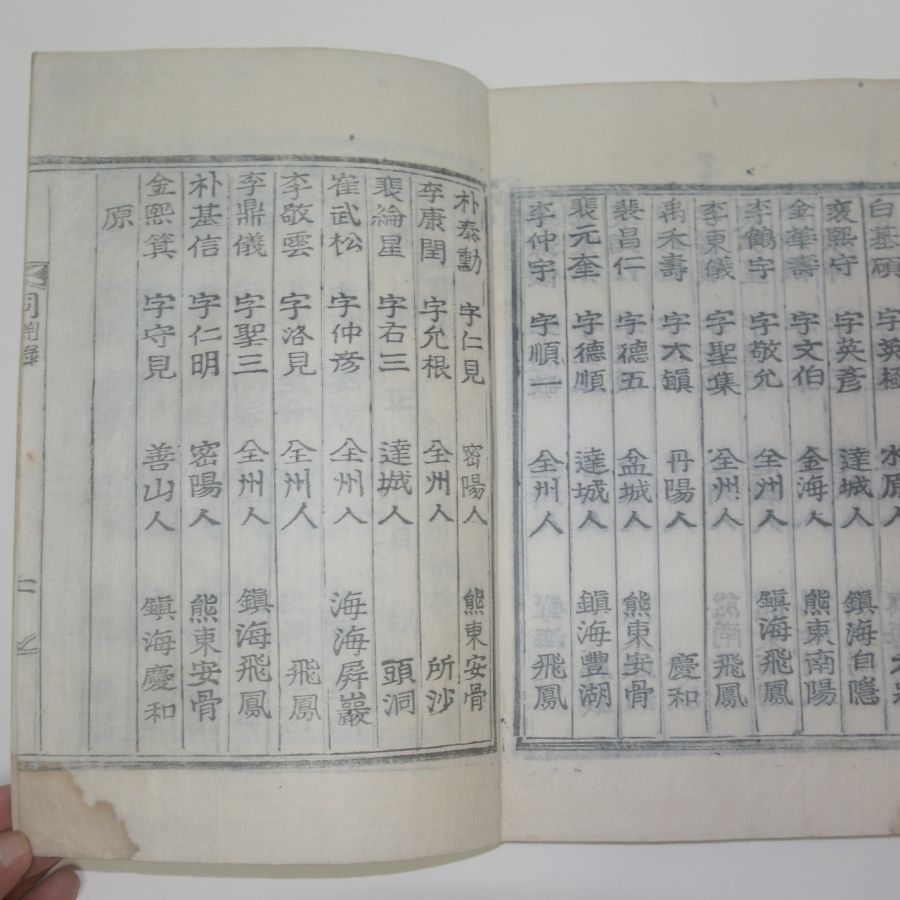 白基碩 字英極 水原人
裵熙守 字英彥 達城人 鎭海自隱
金華壽 字文伯 金海人 熊東南陽
李鶴宇 字敬允 全州人 鎭海飛鳳
李東儀 字聖集 全州人 飛鳳
禹禾壽 字大鎭 丹陽人 慶和
裴昌仁 字德五 盆城人 熊東安骨
裵元奎 字德順 達城人 鎭海豐湖
李仲宇 字順一 全州人 飛鳳
朴泰勳 字仁見 密陽人 熊東安骨
李康閏 字允根 全州人 所沙
裵綸星 字右三 達城人 頭洞
崔武松 字仲彥 全州人 海海屛巖
李敬雲 字洛見 全州人 飛鳳
李鼎儀 字聖三 全州人 鎭海飛鳳
朴基信 字仁明 密陽人 熊東安骨
金熙箕 字守見 善山人 鎭海慶和
原